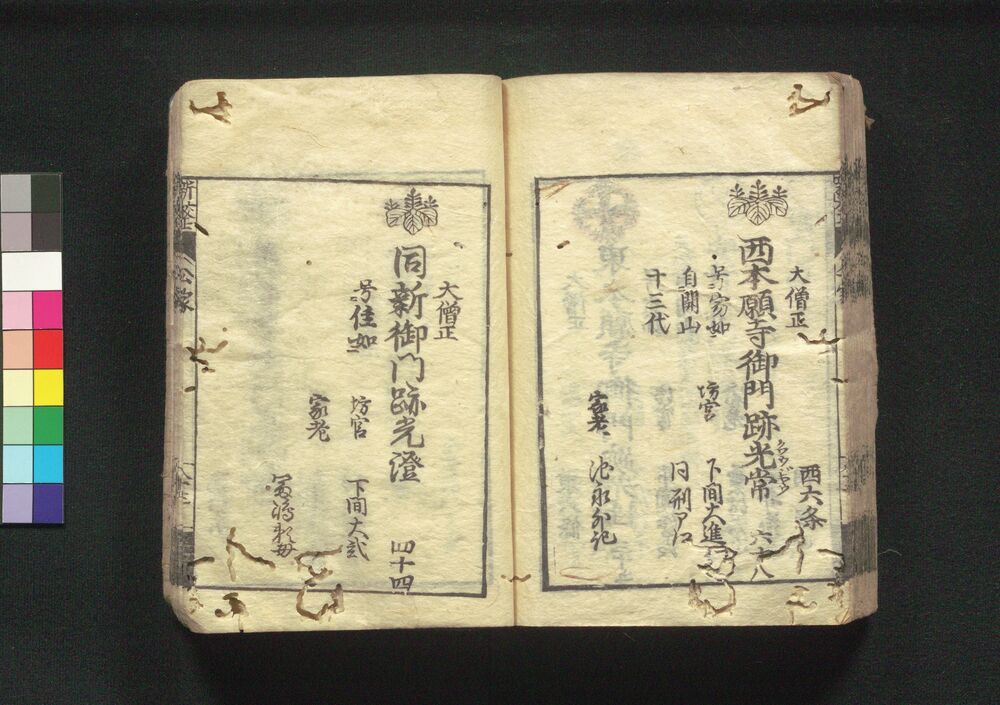 西六条
大僧正
西本願寺御門跡光常 六十八
クワウジヤウ
号寂如
坊官
下間大進
自開山
同刑アハ
十三代
家老
池永
大僧正
同新御門跡光澄 四十四
号住如
坊官
下間大弐
家老
新改正
公家